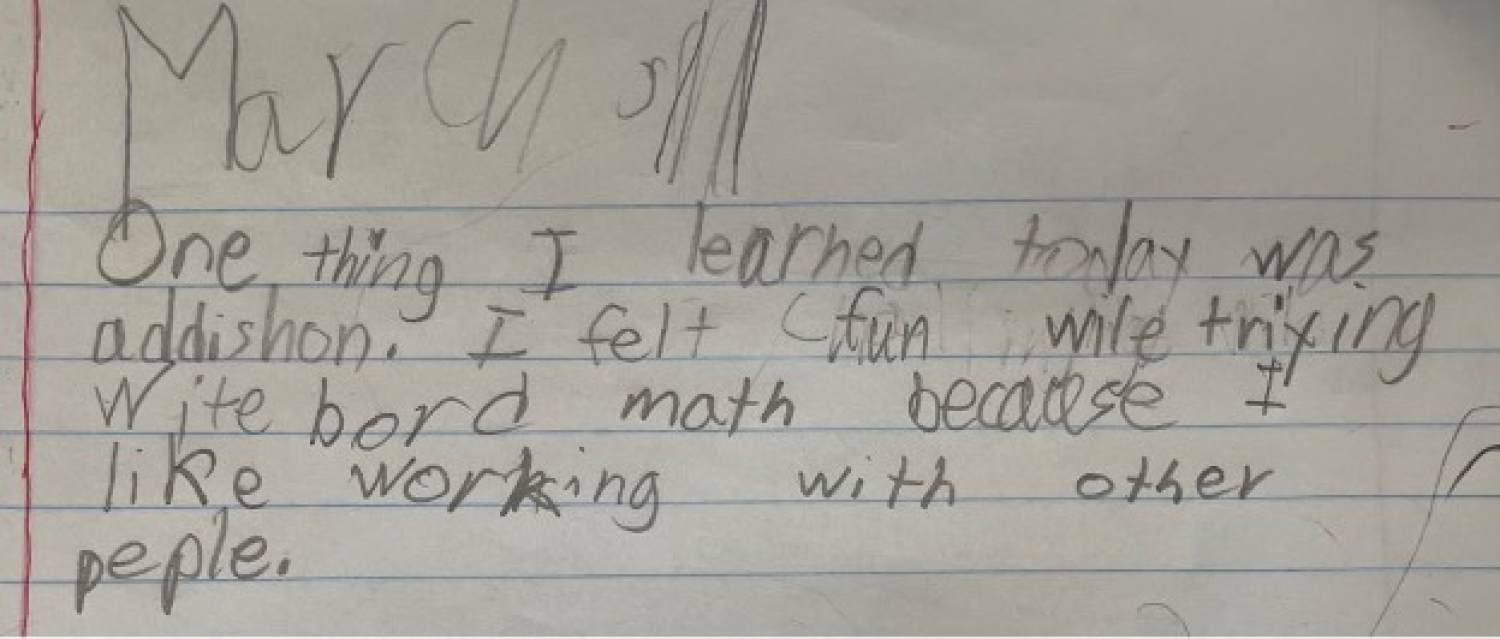 March
One thing I learned today was
addishon. I felt fun wile trixing
Wite bord math because I
like working with other
peple.